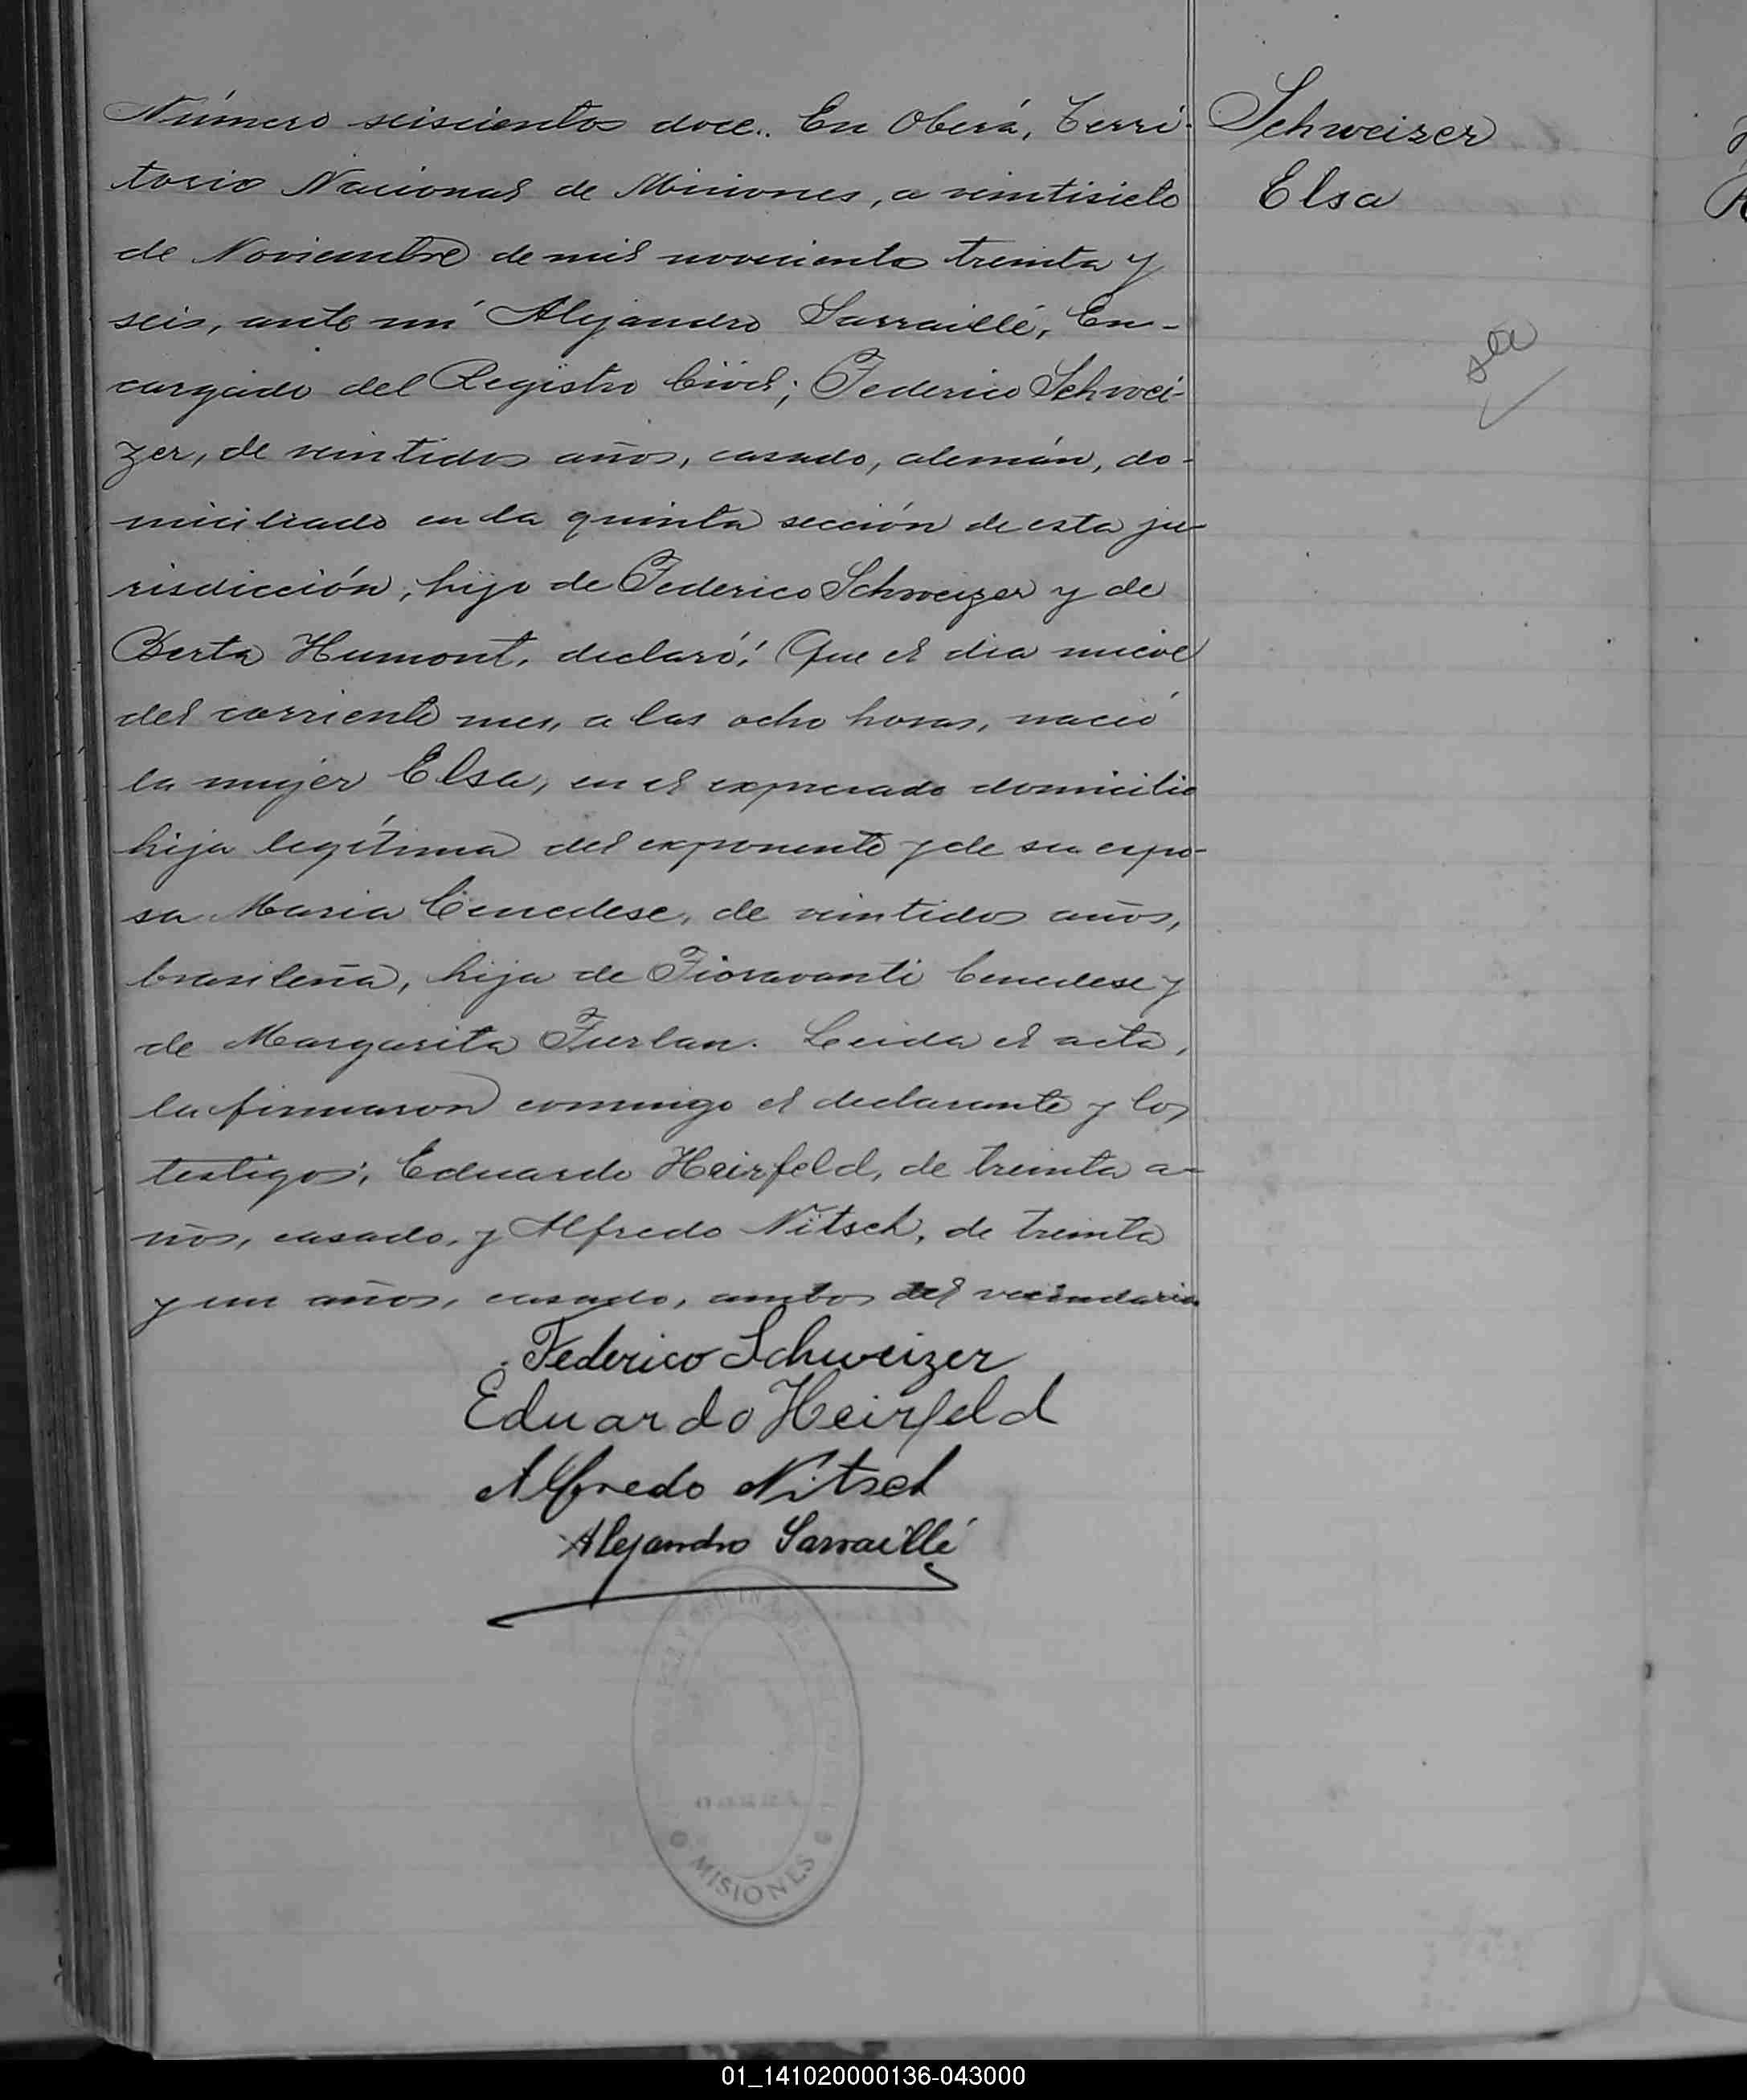 Número seiscientos doce. En Oberá, Terri-
torio Nacional de Misiones, a veintisiete
de Noviembre de mil novecientos treinta y
seis, ante mí Alejandro Sarraillé, En-
cargado del Registro Civil; Federico Schwei-
zer, de veintidos años, casado, alemán, do-
miciliado en la quinta sección de esta ju-
risdicción, hijo de Federico Schweizer y de
Berta Humont, declaró: Que el dia nueve
del corriente mes, a las ocho horas, nació
la mujer Elsa, en el expresado domicilio
hija legítima del exponente y de su espo-
sa Maria Cenedese, de veintidos años,
brasileña, hija de Fioravanti Cenedese y
de Margarita Furlan. Leida el acta,
la firmaron conmigo el declarante y los
testigos; Eduardo Heirfeld, de treinta a-
ños, casado, y Alfredo Nitsch, de treinta
y un años, casado, ambos del vecindario
Federico Schweizer
Eduardo Heirfeld
Alfredo Nitsch
Alejandro Sarraillé
MISIONES
Schweizer
Elsa
01_141020000136-043000